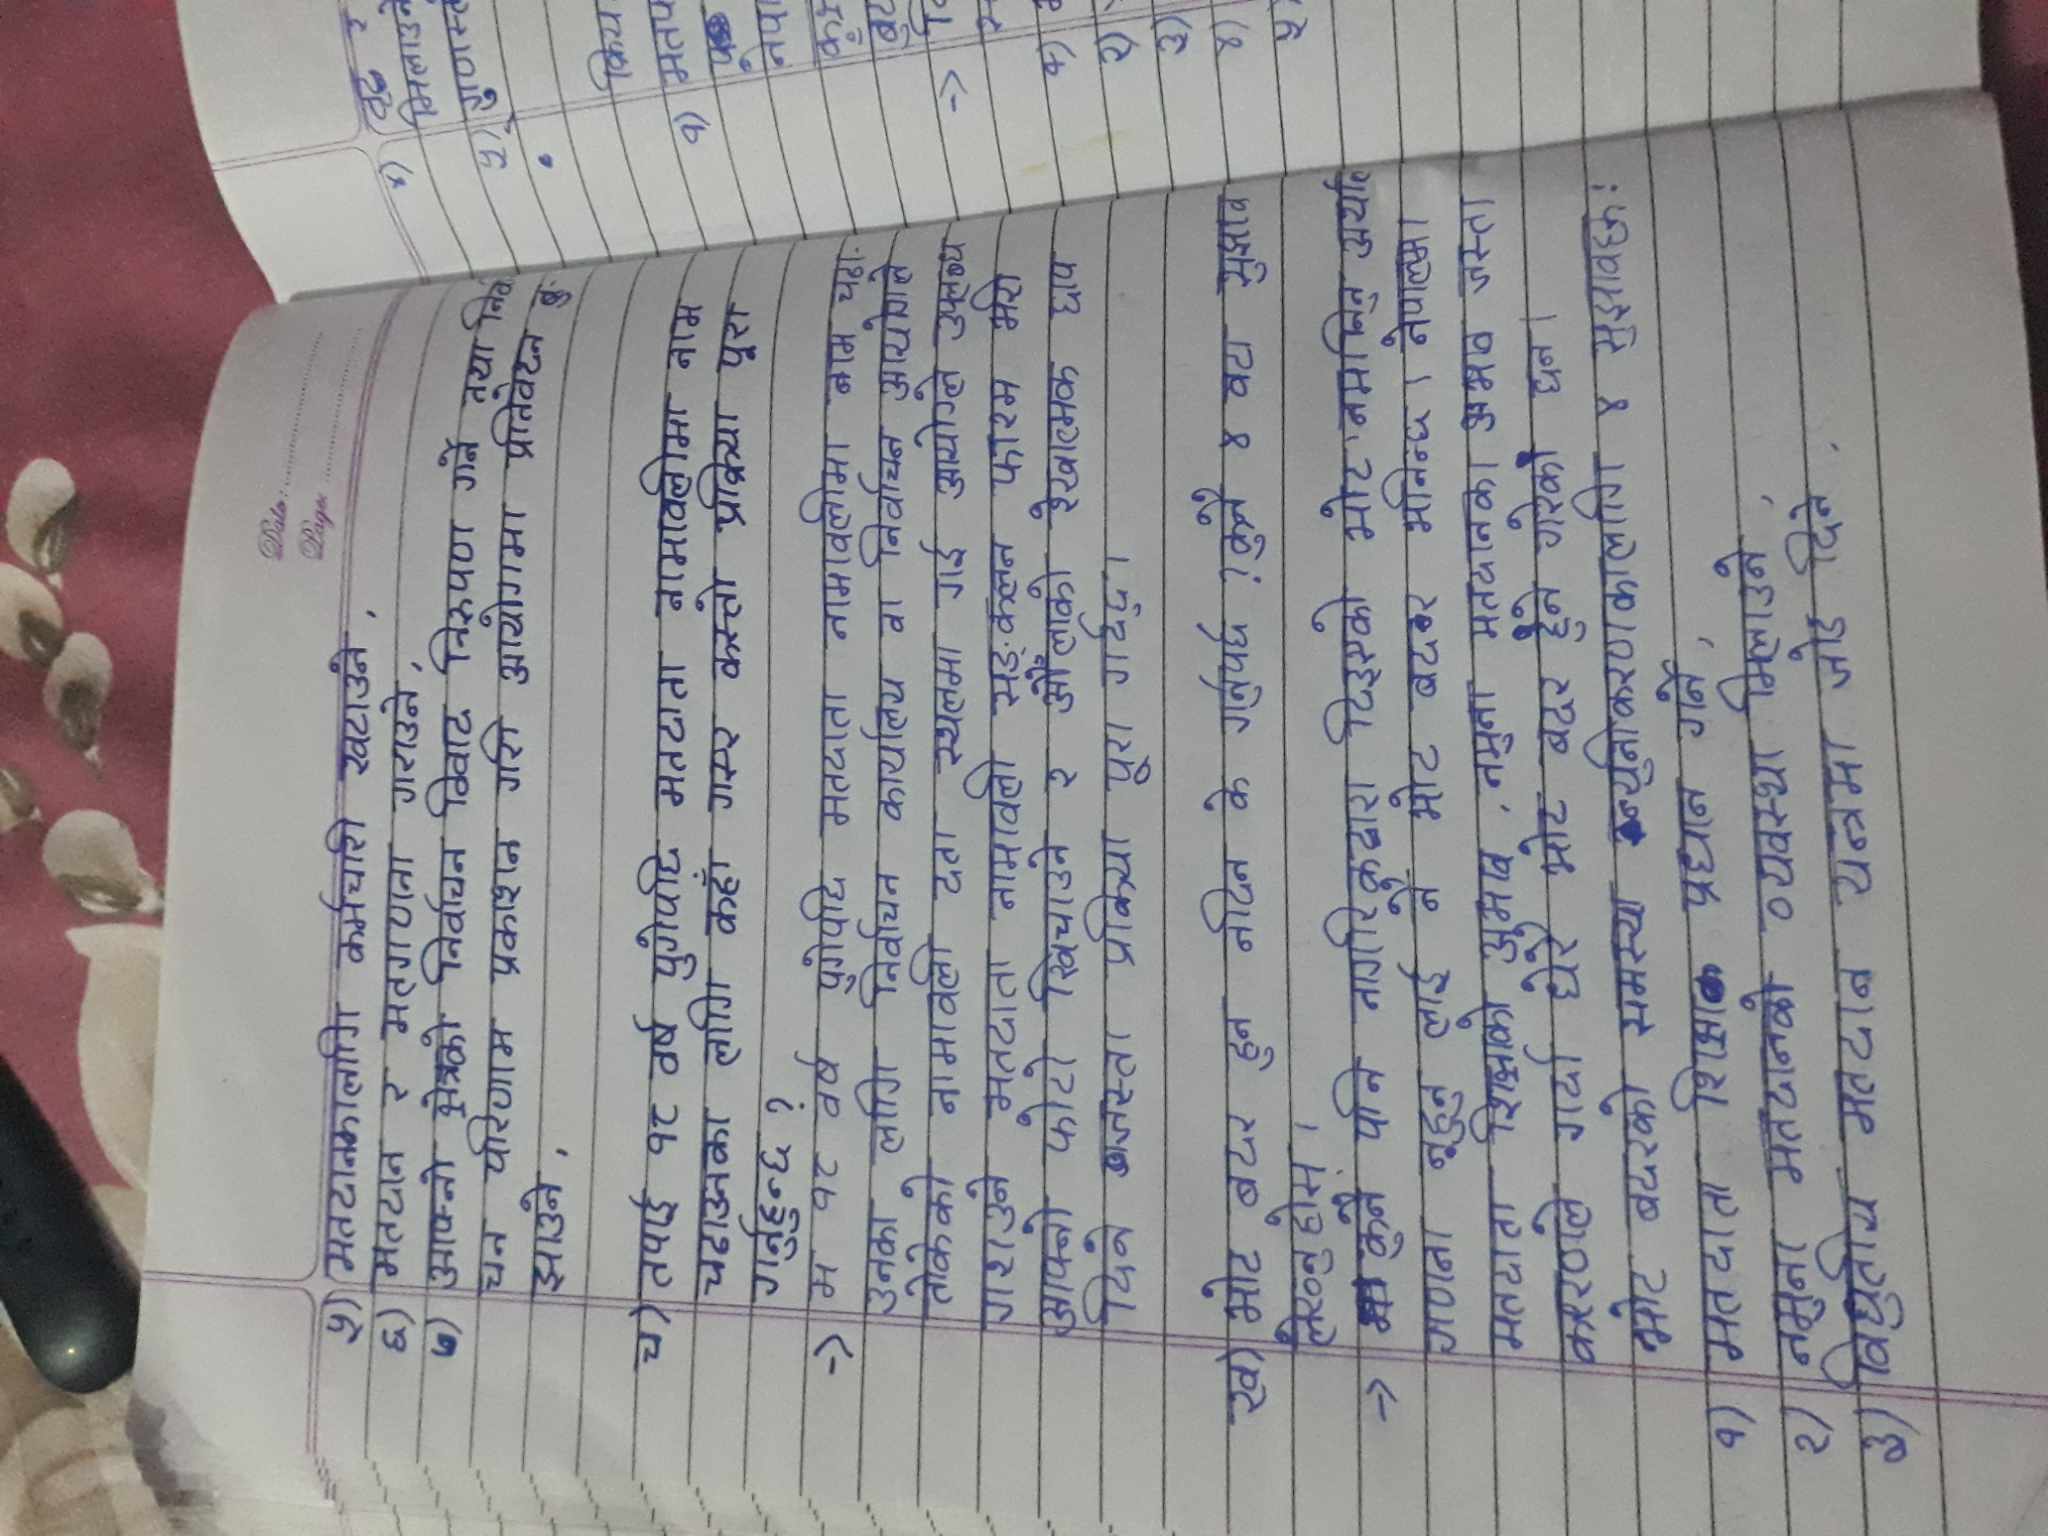 Date:
Page:
५) मतदानकालागि कर्मचारी खटाउने,
६) मतदान र मतगणना गराउने,
७) आफ्नो क्षेत्रको निर्वाचन विवाद निरुपण गर्ने तथा निर्वा
चन परिणाम प्रकाशन गरी आयोगमा प्रतिवेदन बु-
झाउने,
च) तपाई १८ वर्ष पुगेपछि मतदाता नामावलीमा नाम
चढाउनका लागि कहाँ गएर कस्तो प्रक्रिया पूरा
गर्नुहुन्छ ?
-> म १८ वर्ष पुगेपछि मतदाता नामावलीमा नाम चढा-
उनका लागि निर्वाचन कार्यालय वा निर्वाचन आयोगले
तोकेको नामावली दता स्थलमा गई आयोग्ले उपलब्ध
गराउने मतदाता नामावली सङ्कलन फारम भरी
आफ्नो फोटो खिचाउने र औँलाको रेखात्मक छाप
दिने जस्ता प्रक्रिया पूरा गर्दछु।
ख) भोट बदर हुन नदिन के गर्नुपर्छ ? कुनै ४ वटा सुझाव
लेख्नुहोस् ।
-> कुनै पनि नागरिकद्वारा दिइएको भोट नमानिनु अर्थात
गणना नहुनु लाई नै भोट बदर भनिन्छ। नेपालमा
मतदाता शिक्षाको अभाव, नमुना मतदानका अभाव जस्ता
कारणले गर्दा धेरै भोट बदर हुने गरेका छन।
भोट बदरको समस्या न्युनीकरणकालागि ४ सुझावहरू:
१) मतदाता शिक्षा प्रधान गर्ने,
२) नमुना मतदानको व्यवस्था मिलाउने,
३) विधुतीय मतदान यन्त्रमा जोड दिने,
४) वृद्ध र
मिलाउने
५) गुणस्त
क्रिय
१) मतप
नेपा
->
२)
३)
४)
५)